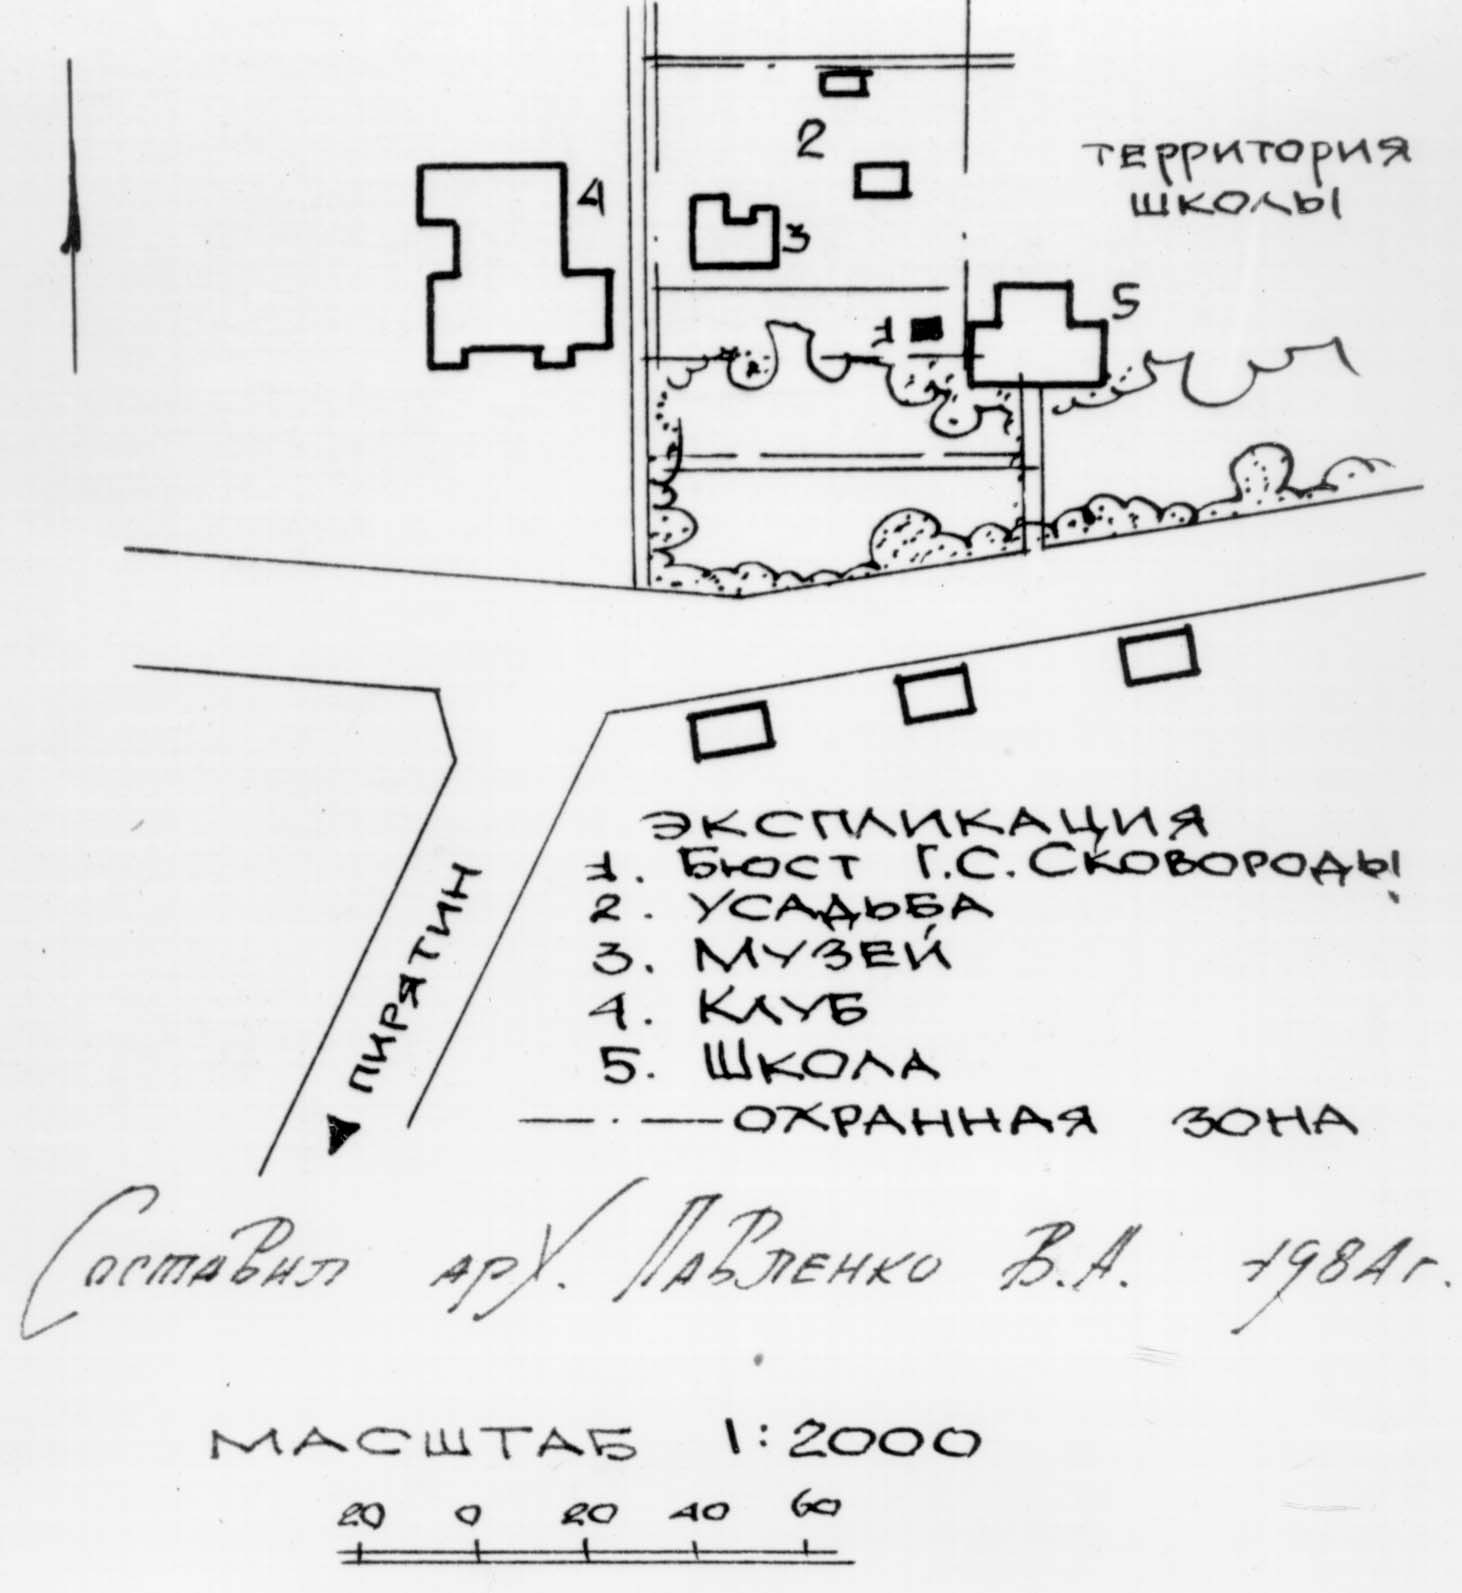 2
ТЕРРИТОРИЯ
ШКОЛЫ
4
3
5
1
ЭКСПЛИКАЦИЯ
1. БЮСТ Г.С. СКОВОРОДЫ
2. УСАДЬБА
3. МУЗЕЙ
4. КЛУБ
5. ШКОЛА
ОХРАННАЯ ЗОНА
ПИРЯТИН
Составил арх. Павленко В.А. 1984г.
МАСШТАБ 1:2000
20 0 20 40 60